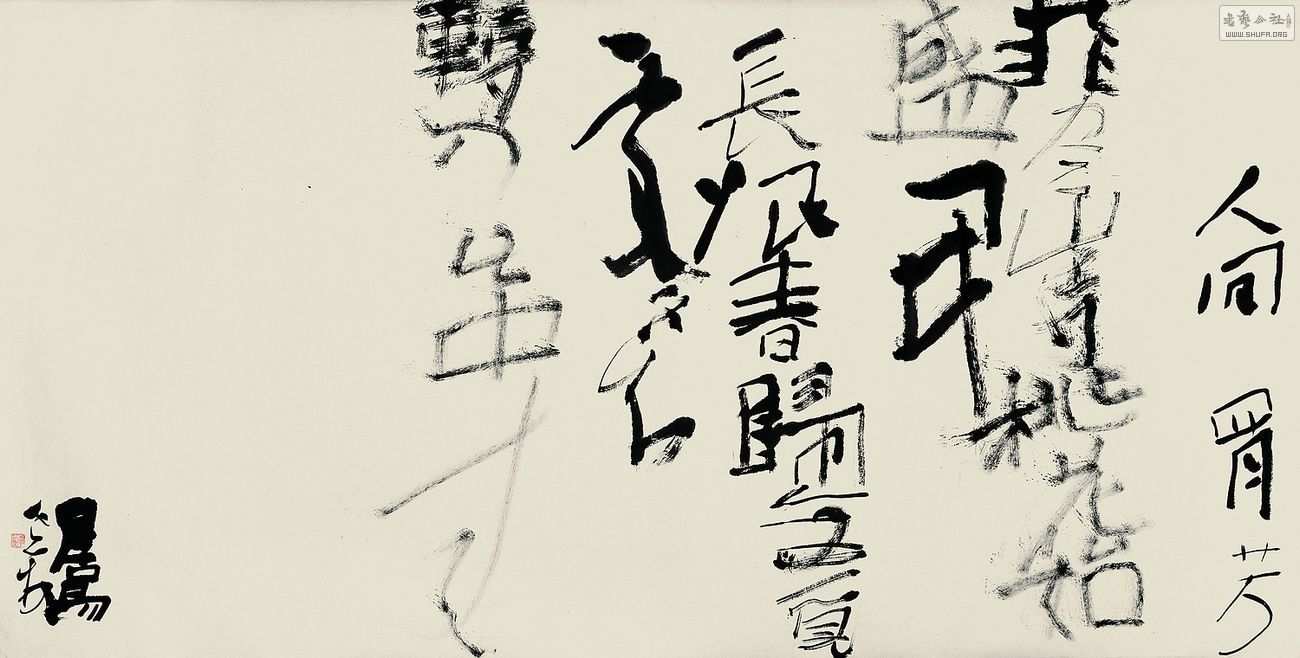 人间四月芳
菲尽山寺桃花始
盛開
長恨春歸無覓
處不知
轉入此中来
書藝公社
WWW.SHUFA.ORG